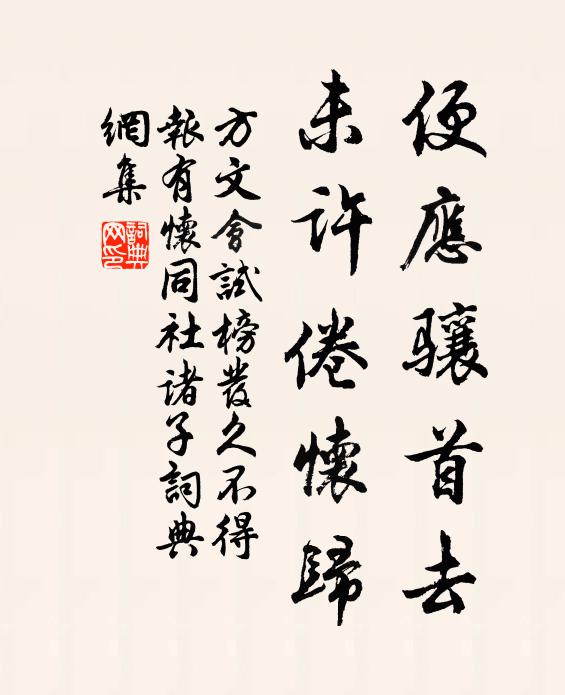 便應驤首去
未許倦懷歸
方文會試榜發久不得
報有懷同社诸子詞典
網集
詞典
网印